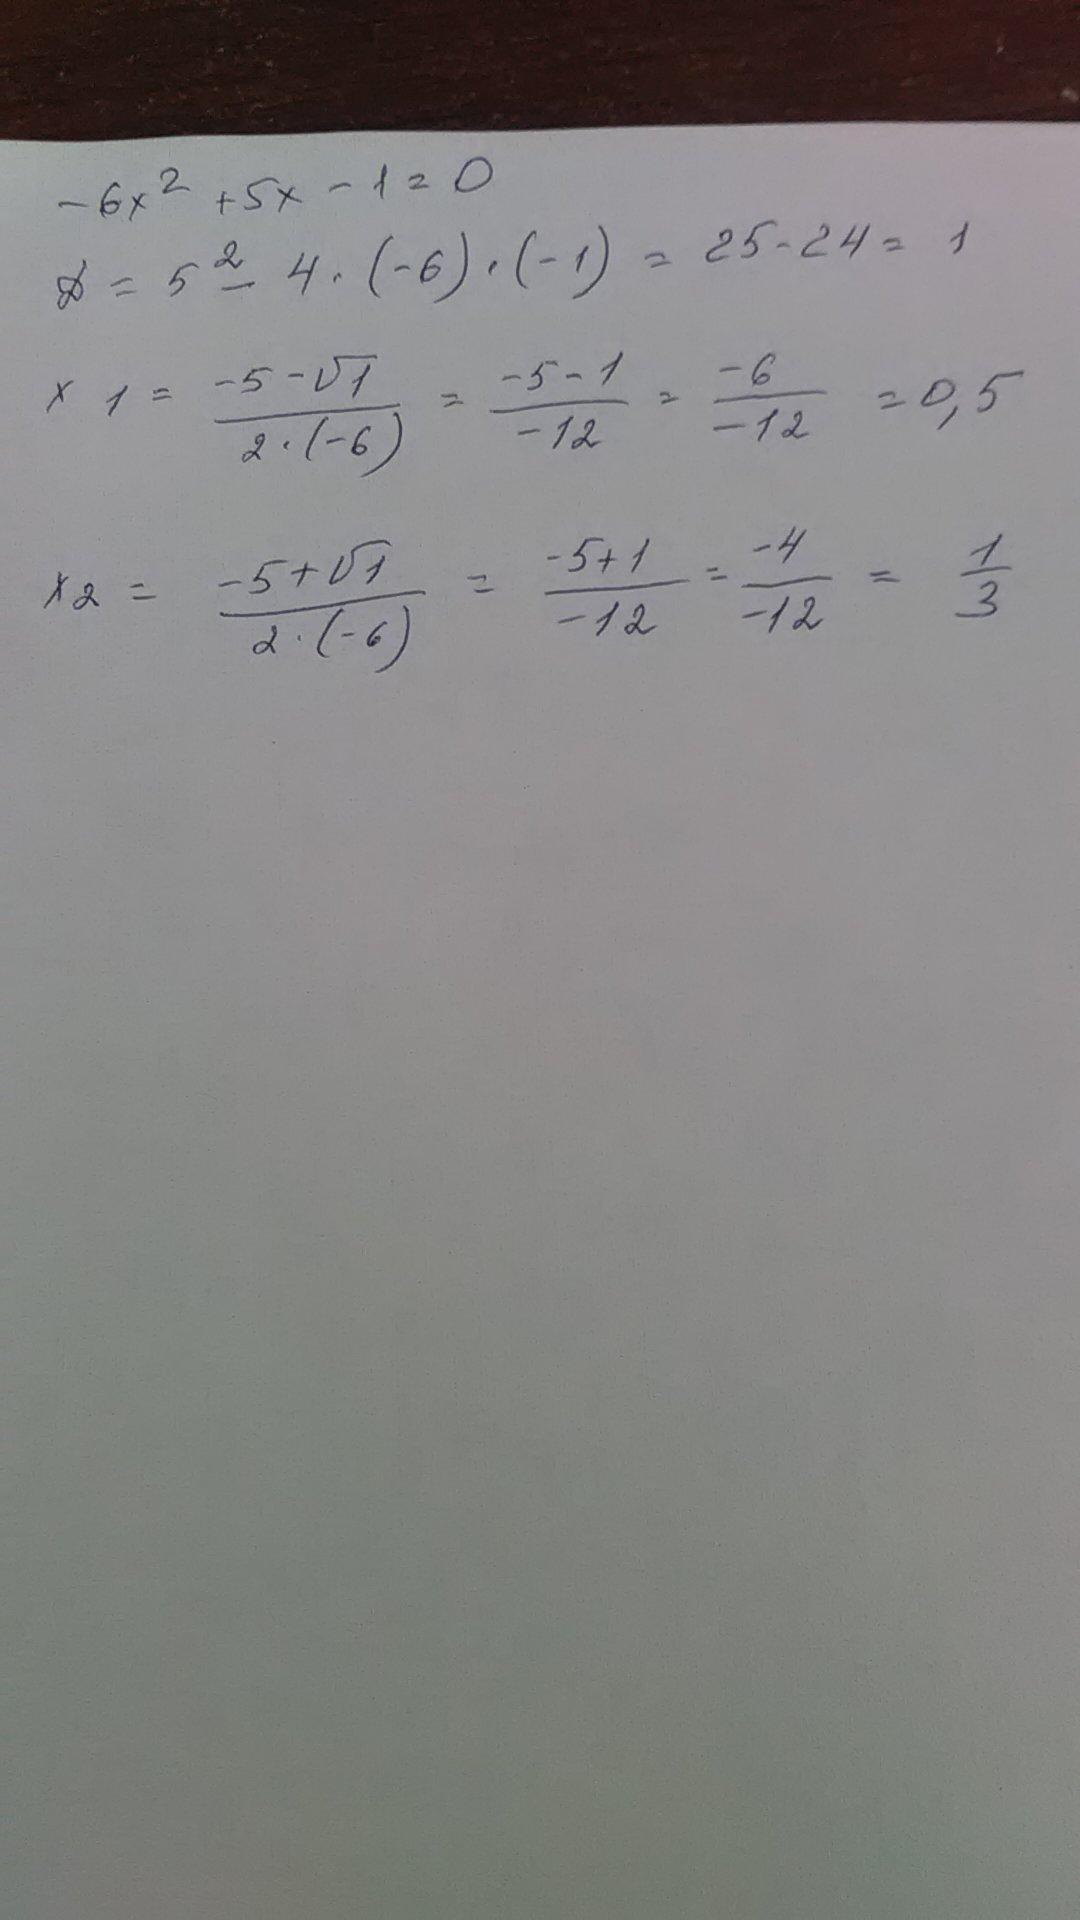 -6x² +5x - 1 = 0
D = 5² - 4 · (-6) · (-1) = 25 - 24 = 1
x 1 = (-5 - √1)/(2 · (-6)) = (-5 - 1)/(-12) = (-6)/(-12) = 0,5
x2 = (-5 + √1)/(2 · (-6)) = (-5 + 1)/(-12) = (-4)/(-12) = 1/3